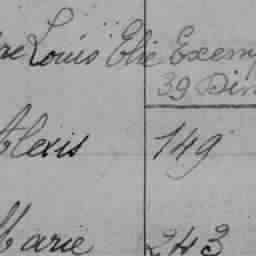 Louis Elie Exem
39 Din
Alexis 149
Marie 243